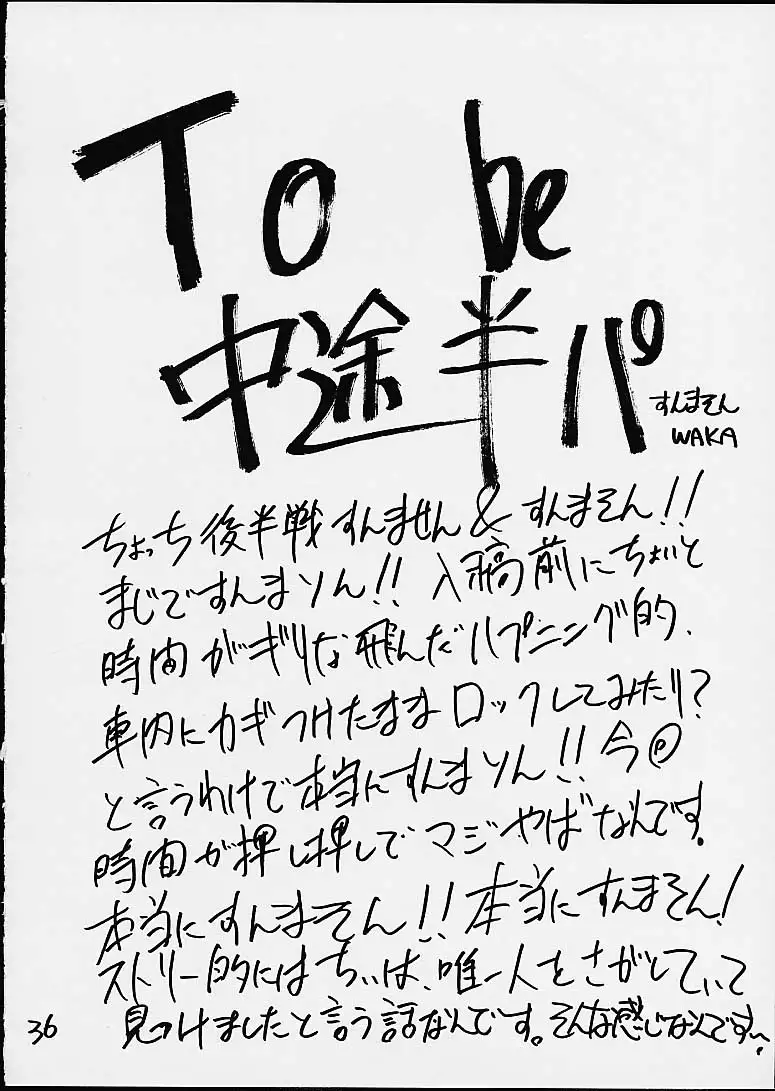 To be
中途半パ
すんまそん
WAKA
ちょっち後半戦すんません&すんまそん!!
まじですんまソん!! 入稿前にちょいと
時間がギリな飛んだハプニング的、
車内にカギつけたままロックしてみたり?
と言うわけで本当にすんまソん!! 今@
時間が押し押しでマジやばなんです。
本当にすんまそん!! 本当にすんまそん!
ストーリー的にはちぃは、唯一人をさがしていて
見つけましたと言う話なんです。そんな感じなんです〜。
36